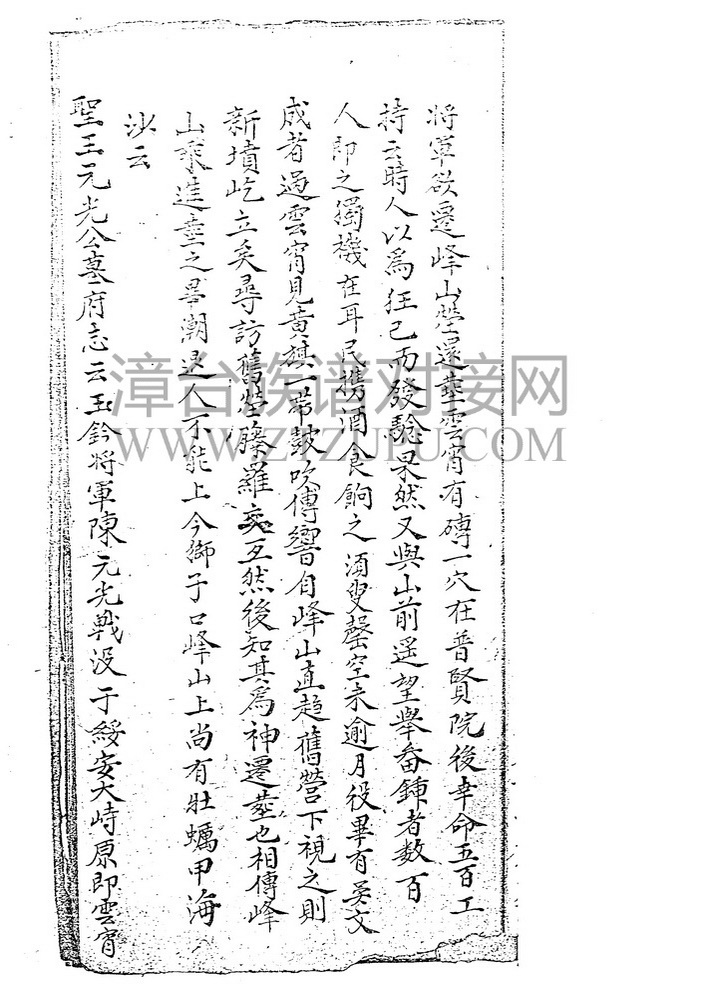 将軍欲遷峰山塋還塟雲霄有磚一穴在普賢院後幸命五百工
持云時人以爲狂已而發驗果然又與山前遥望舉畚鍤者数百
人即之獨機在耳民携酒食餉之須叟罄空未逾月役畢有吴文
成者過雲霄見黄旗一帶鼓吹傳響自峰山直趋舊營下視之則
新墳屹立矣尋訪舊塋藤羅交互然後知其爲神遷塟也相傳峰
山乘進塟之畢潮退人不能上今獅子口峰山上尚有牡蠣甲海
沙云
聖王元光公墓府志云玉鈐将軍陳元光戰没于綏安大峙原即雲霄
漳台族谱对接网
WWW.ZTZUPU.COM